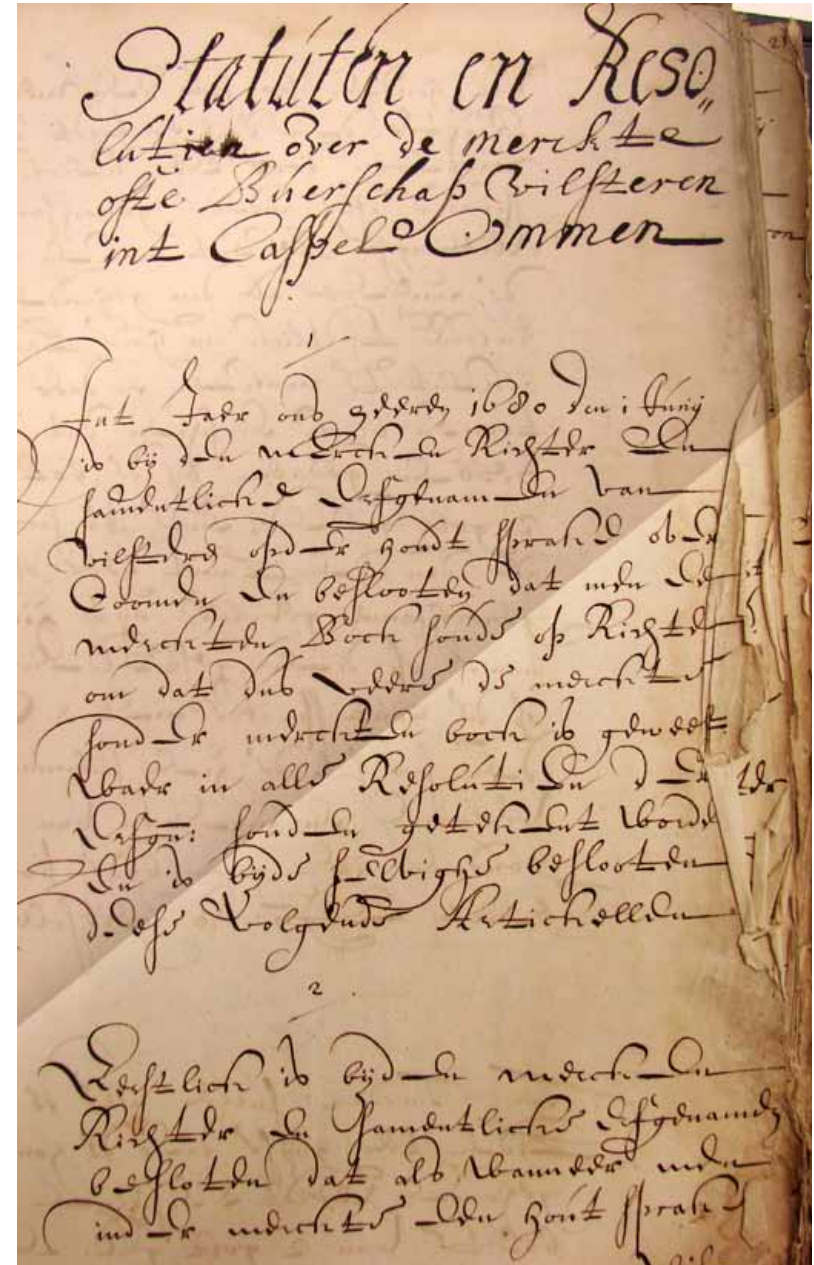 Statuten en Reso„
lutien over de merckte
ofte Buerschap vilsteren
int Casspel Ommen
1
Int Jaer ons heeren 1680 den 1 Junij
is bij den mercken Richter en
samentlicke Erfgenamen van
vilsteren op der hondt sprake over
Coomen en beslooten dat men een
merckten Bock soude op Richten
om dat dus veere de merckte
sonder merckten bock is geweest
waer in alle Resolutien der
Erfgn: souden getekent worde
En is bijde selvighe beslooten
deese volgende Artickellen
2
Eerstlick is bijden mercken
Richter en samentlicke Erfgenamen
besloten dat als wanneer men
inder merckte een hout sprake